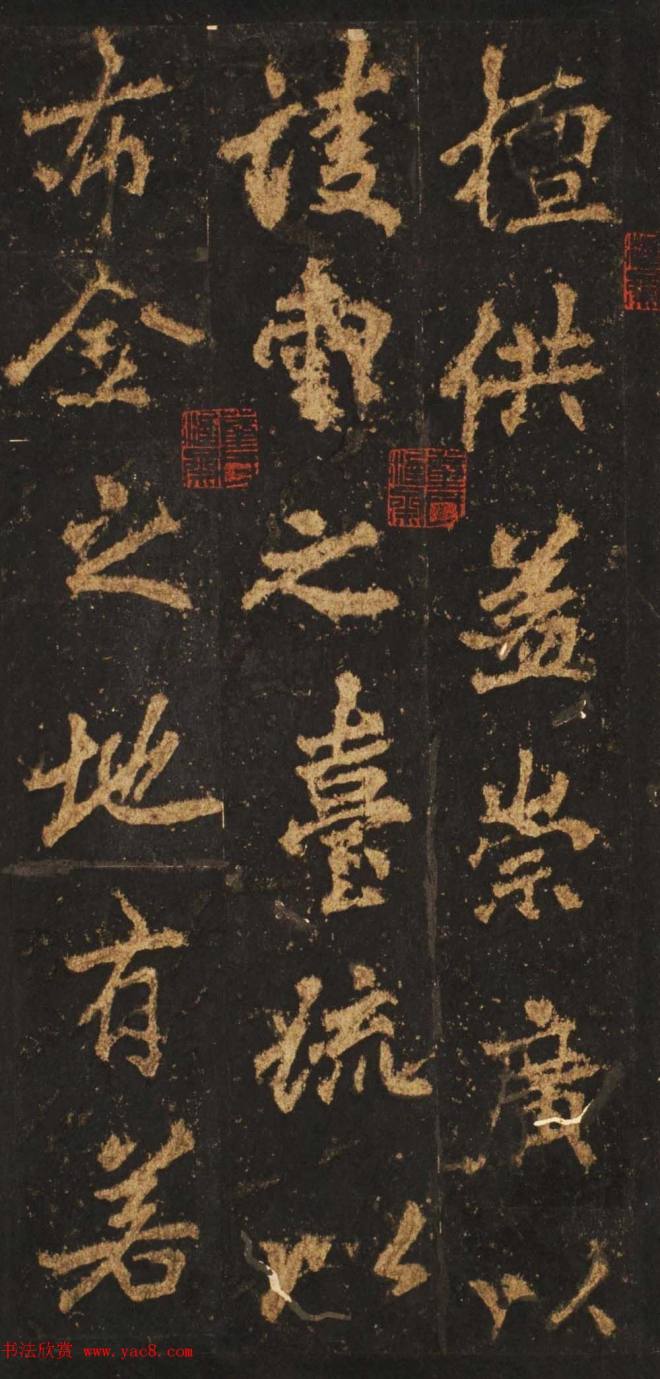 檀供盖崇廣以
淩雲之臺疏以
布金之地有若
书法欣赏 www.yac8.com